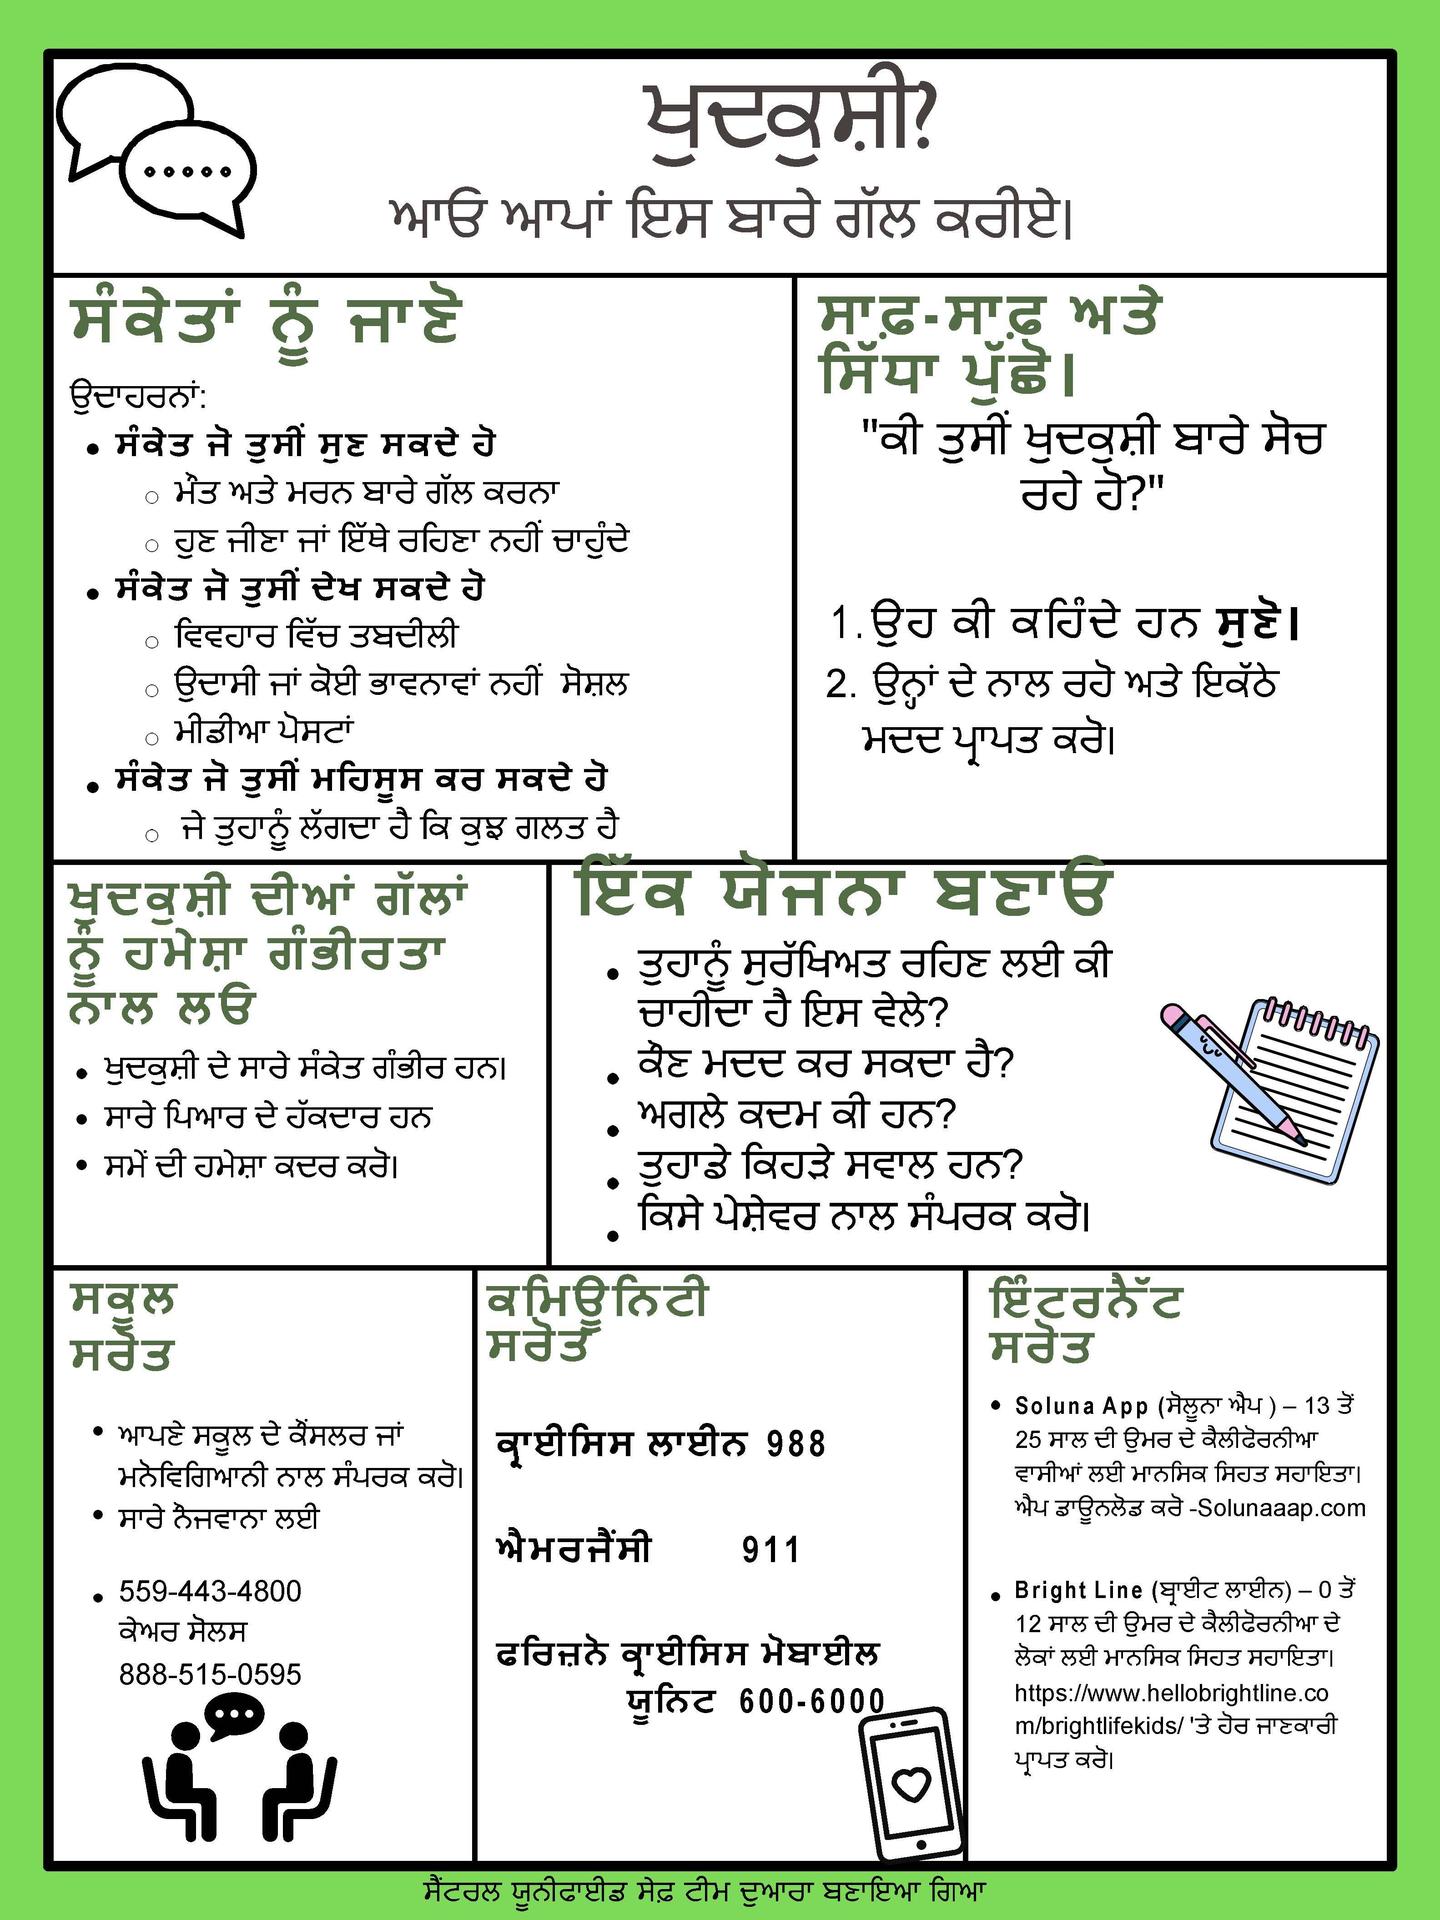 ਖੁਦਕੁਸ਼ੀ?
ਆਓ ਆਪਾਂ ਇਸ ਬਾਰੇ ਗੱਲ ਕਰੀਏ।
ਸੰਕੇਤਾਂ ਨੂੰ ਜਾਣੋ
ਉਦਾਹਰਨਾਂ:
• ਸੰਕੇਤ ਜੋ ਤੁਸੀਂ ਸੁਣ ਸਕਦੇ ਹੋ
○ ਮੌਤ ਅਤੇ ਮਰਨ ਬਾਰੇ ਗੱਲ ਕਰਨਾ
○ ਹੁਣ ਜੀਣਾ ਜਾਂ ਇੱਥੇ ਰਹਿਣਾ ਨਹੀਂ ਚਾਹੁੰਦੇ
• ਸੰਕੇਤ ਜੋ ਤੁਸੀਂ ਦੇਖ ਸਕਦੇ ਹੋ
○ ਵਿਵਹਾਰ ਵਿੱਚ ਤਬਦੀਲੀ
○ ਉਦਾਸੀ ਜਾਂ ਕੋਈ ਭਾਵਨਾਵਾਂ ਨਹੀਂ ਸੋਸ਼ਲ
○ ਮੀਡੀਆ ਪੋਸਟਾਂ
• ਸੰਕੇਤ ਜੋ ਤੁਸੀਂ ਮਹਿਸੂਸ ਕਰ ਸਕਦੇ ਹੋ
○ ਜੇ ਤੁਹਾਨੂੰ ਲੱਗਦਾ ਹੈ ਕਿ ਕੁਝ ਗਲਤ ਹੈ
ਸਾਫ਼-ਸਾਫ਼ ਅਤੇ
ਸਿੱਧਾ ਪੁੱਛੋ।
"ਕੀ ਤੁਸੀਂ ਖੁਦਕੁਸ਼ੀ ਬਾਰੇ ਸੋਚ
ਰਹੇ ਹੋ?"
1. ਉਹ ਕੀ ਕਹਿੰਦੇ ਹਨ ਸੁਣੋ।
2. ਉਨ੍ਹਾਂ ਦੇ ਨਾਲ ਰਹੋ ਅਤੇ ਇਕੱਠੇ
ਮਦਦ ਪ੍ਰਾਪਤ ਕਰੋ।
ਖੁਦਕੁਸ਼ੀ ਦੀਆਂ ਗੱਲਾਂ
ਨੂੰ ਹਮੇਸ਼ਾ ਗੰਭੀਰਤਾ
ਨਾਲ ਲਓ
• ਖੁਦਕੁਸ਼ੀ ਦੇ ਸਾਰੇ ਸੰਕੇਤ ਗੰਭੀਰ ਹਨ।
• ਸਾਰੇ ਪਿਆਰ ਦੇ ਹੱਕਦਾਰ ਹਨ
• ਸਮੇਂ ਦੀ ਹਮੇਸ਼ਾ ਕਦਰ ਕਰੋ।
ਇੱਕ ਯੋਜਨਾ ਬਣਾਓ
• ਤੁਹਾਨੂੰ ਸੁਰੱਖਿਅਤ ਰਹਿਣ ਲਈ ਕੀ
ਚਾਹੀਦਾ ਹੈ ਇਸ ਵੇਲੇ?
• ਕੌਣ ਮਦਦ ਕਰ ਸਕਦਾ ਹੈ?
• ਅਗਲੇ ਕਦਮ ਕੀ ਹਨ?
• ਤੁਹਾਡੇ ਕਿਹੜੇ ਸਵਾਲ ਹਨ?
• ਕਿਸੇ ਪੇਸ਼ੇਵਰ ਨਾਲ ਸੰਪਰਕ ਕਰੋ।
ਸਕੂਲ
ਸਰੋਤ
• ਆਪਣੇ ਸਕੂਲ ਦੇ ਕੌਂਸਲਰ ਜਾਂ
ਮਨੋਵਿਗਿਆਨੀ ਨਾਲ ਸੰਪਰਕ ਕਰੋ।
• ਸਾਰੇ ਨੌਜਵਾਨਾ ਲਈ
• 559-443-4800
ਕੇਅਰ ਸੋਲਸ
888-515-0595
ਕਮਿਊਨਿਟੀ
ਸਰੋਤ
ਕ੍ਰਾਈਸਿਸ ਲਾਈਨ 988
ਐਮਰਜੈਂਸੀ 911
ਫਰਿਜ਼ਨੋ ਕ੍ਰਾਈਸਿਸ ਮੋਬਾਈਲ
ਯੂਨਿਟ 600-6000
ਇੰਟਰਨੈੱਟ
ਸਰੋਤ
• Soluna App (ਸੋਲੂਨਾ ਐਪ ) – 13 ਤੋਂ
25 ਸਾਲ ਦੀ ਉਮਰ ਦੇ ਕੈਲੀਫੋਰਨੀਆ
ਵਾਸੀਆਂ ਲਈ ਮਾਨਸਿਕ ਸਿਹਤ ਸਹਾਇਤਾ।
ਐਪ ਡਾਊਨਲੋਡ ਕਰੋ -Solunaaap.com
• Bright Line (ਬ੍ਰਾਈਟ ਲਾਈਨ) – 0 ਤੋਂ
12 ਸਾਲ ਦੀ ਉਮਰ ਦੇ ਕੈਲੀਫੋਰਨੀਆ ਦੇ
ਲੋਕਾਂ ਲਈ ਮਾਨਸਿਕ ਸਿਹਤ ਸਹਾਇਤਾ।
https://www.hellobrightline.co
m/brightlifekids/ 'ਤੇ ਹੋਰ ਜਾਣਕਾਰੀ
ਪ੍ਰਾਪਤ ਕਰੋ।
ਸੈਂਟਰਲ ਯੂਨੀਫਾਈਡ ਸੇਫ਼ ਟੀਮ ਦੁਆਰਾ ਬਣਾਇਆ ਗਿਆ